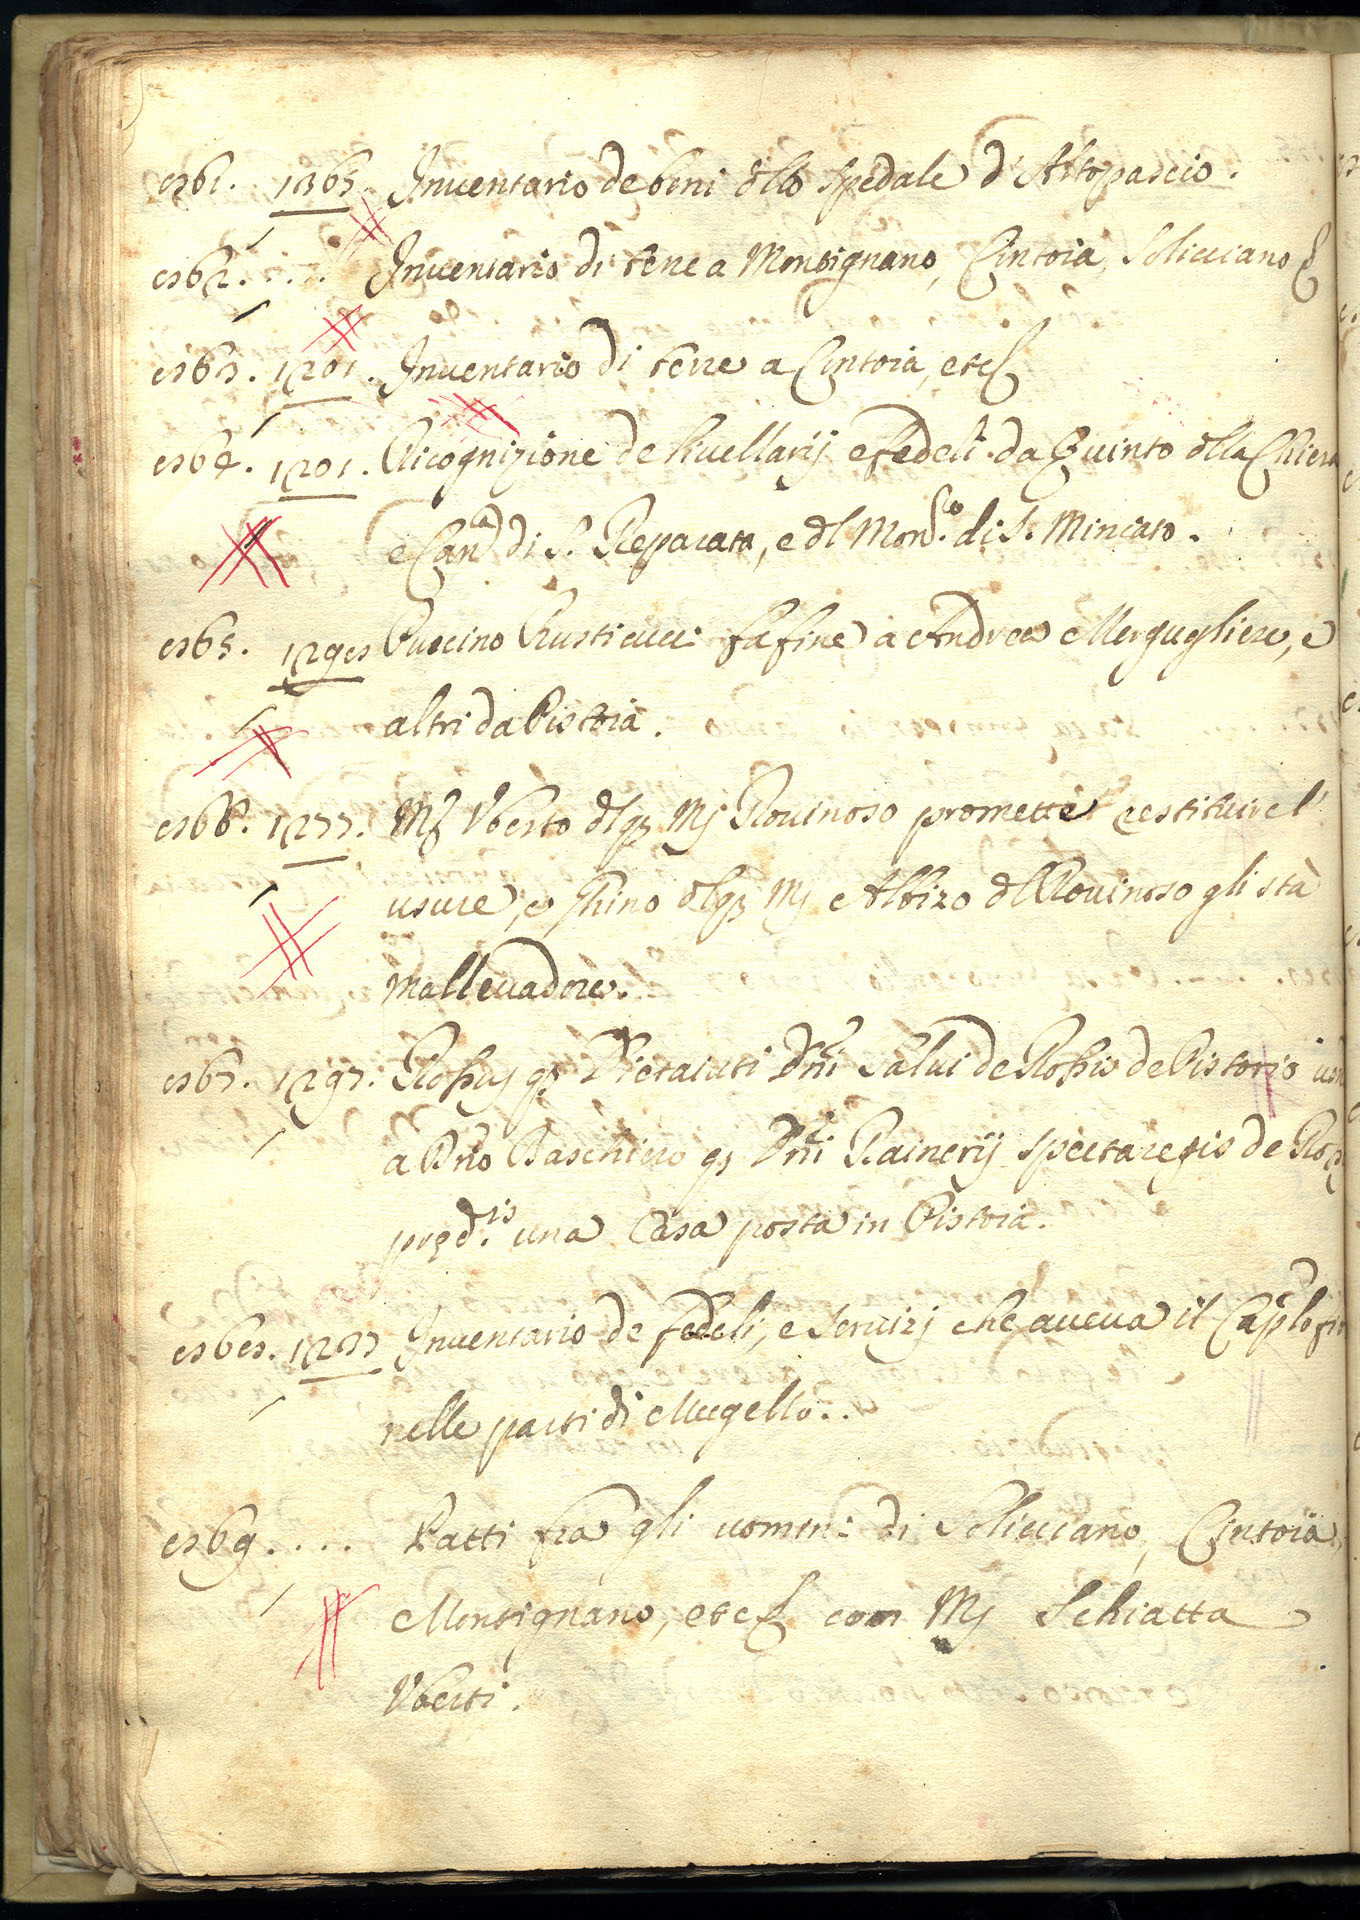 861. 1365. Inventario de beni dllo Spedale d'Altopascio.
862. . . . Inventario di terre a Montignano, Cintoia, Solicciano &
863. 1201. Inventario di terre a Cintoia, etc&
864. 1201. Ricognizione de livellarij e fedeli da Quinto dlla Chiesa
e Can.a di S. Reparata, e dl Mon.o di S. Miniato.
865. 1298 Puccino Rusticucci fa fine a Andrea Mergugliese, e
altri da Pistoia.
866. 1277. Mj Uberto dl q3 Mj Rovinoso promette restituire l'
usure, e Ghino dl q3 Mj Albizo dl Rovinoso gli sta
mallevadore.
867. 1297. Roßus q3 Dietaiuti Dni Salvi de Roßis de Pistorio
a Dno Baschiero q3 Dni Rainerij de
pred.is una Casa posta in Pistoia.
868. 1277 Inventario de fedeli, e servizj che aveva il Caplo
nelle parti di Mugello..
869. . . . Patti fra gli uomini di Solicciano, Cintoia,
Montignano, etc& con Mj Schiatta
Uberti.